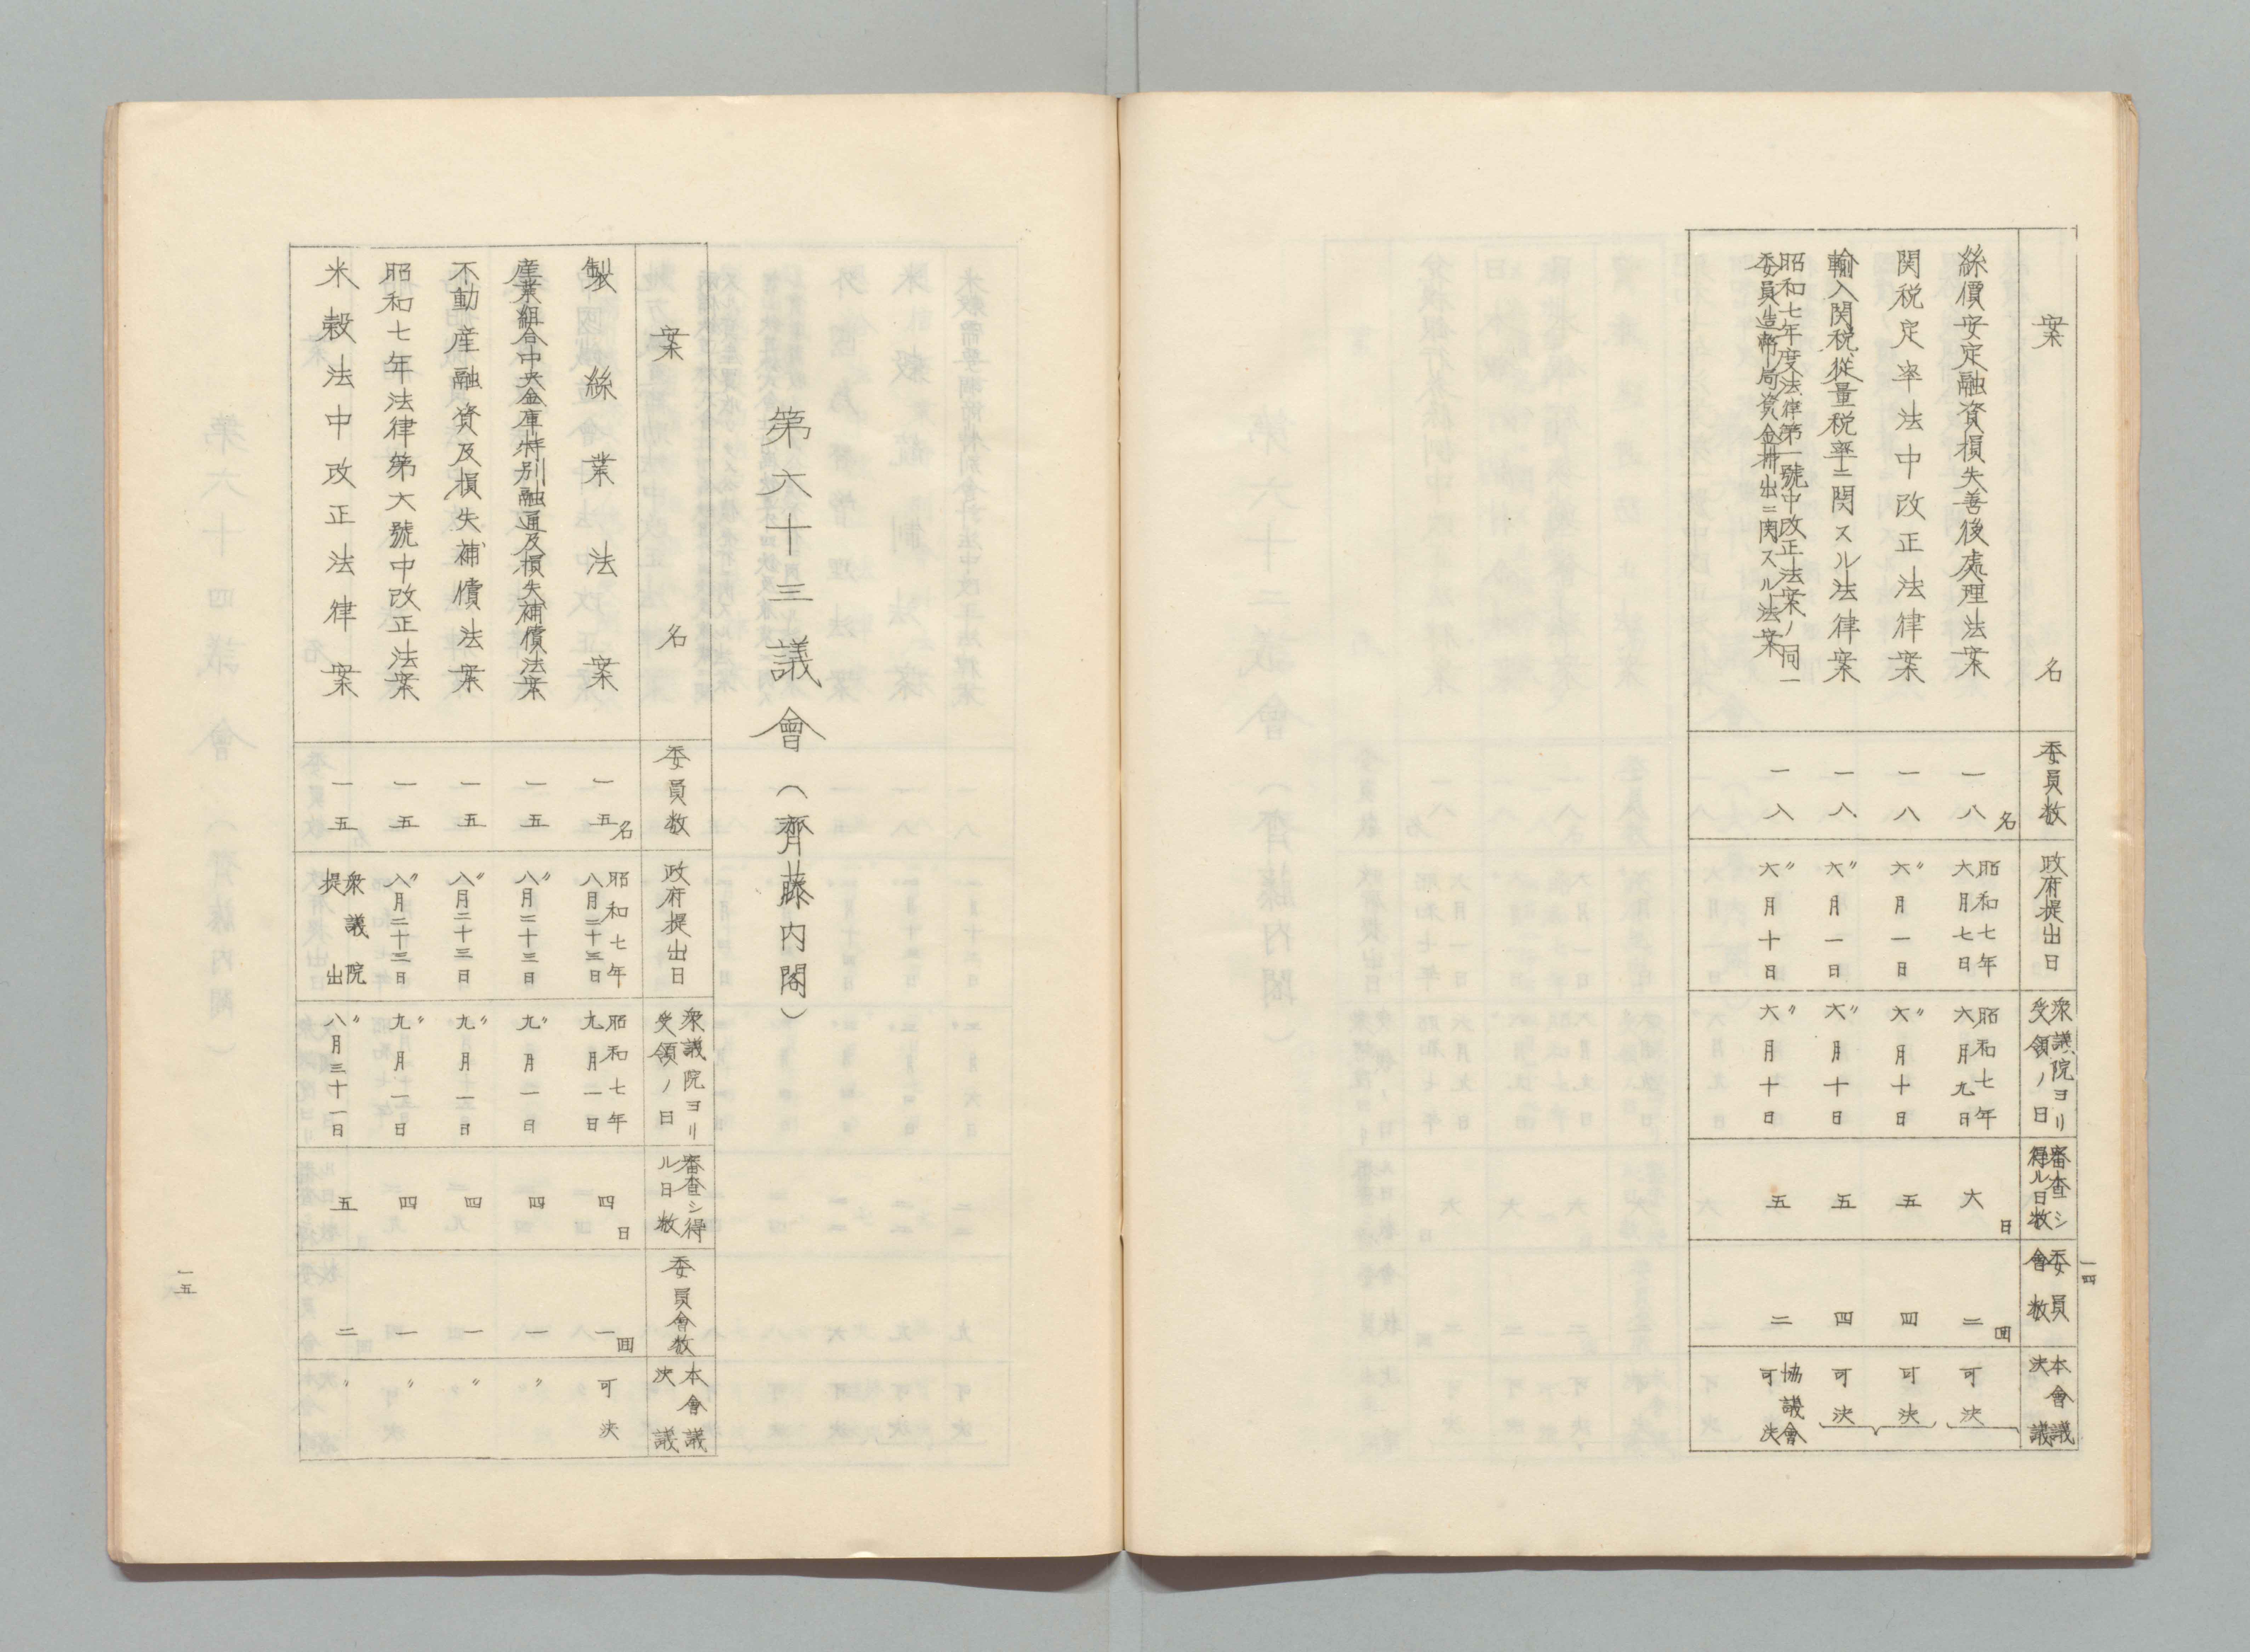 一四
案名
委員数
政府提出日
衆議院ヨリ
受領ノ日
審査シ
得ル日数
委員
會数
本會議
決議
絲價安定融資損失善後處理法案
一八名
昭和七年
六月七日
昭和七年
六月九日
六日
二囬
可決
関税定率法中改正法律案
一八
〃
六月一日
〃
六月十日
五
四
可決
輸入関税従量税率ニ関スル法律案
一八
〃
六月一日
〃
六月十日
五
四
可決
昭和七年度法律第一號中改正法案ノ同一
委員造幣局資金拂出ニ関スル法案
一八
〃
六月十日
〃
六月十日
五
二
協議會
可決
第六十三議會（齊藤内閣）
案名
委員数
政府提出日
衆議院ヨリ
受領ノ日
審査シ得
ル日数
委員會数
本會議
決議
製絲業法案
一五名
昭和七年
八月二十三日
昭和七年
九月一日
四日
一囬
可決
産業組合中央金庫特別融通及損失補償法案
一五
〃
八月二十三日
〃
九月一日
四
一
〃
不動産融資及損失補償法案
一五
〃
八月二十三日
〃
九月一日
四
一
〃
昭和七年法律第六號中改正法案
一五
〃
八月二十三日
〃
九月一日
四
一
〃
米穀法中改正法律案
一五
衆議院
提出
〃
八月三十一日
五
二
〃
一五